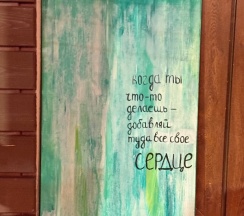 когда ты
что-то
делаешь –
добавляй
туда все свое
сердце